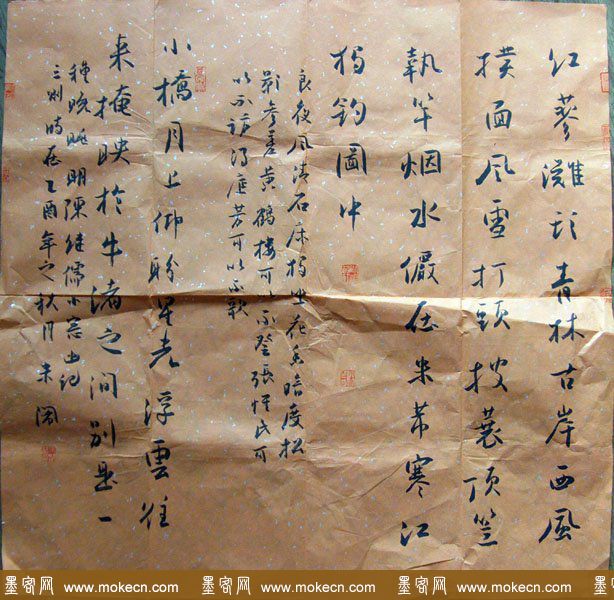 红蓼滩头青林古岸西風
撲面风雪打頭披蓑顶笠
執竿烟水儼在米芾寒江
獨钓圖中
良夜风清石床獨坐花香暗度松
影参差黄鹤楼可以不登張懷民可
以不访满庭芳可以不歌
小橋月上仰盼星光浮雲往
来掩映於牛渚之间别是一
種晚眺明陳继儒小窗幽记
三则时在乙酉年之秋月
墨客网 www.mokecn.com 墨客网 www.mokecn.com 墨客网 www.mokecn.com